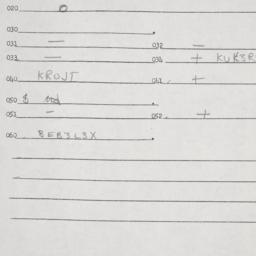 020 o
030
031 — 032 —
033 — 034 + KUK3R
040 KROJT 041 +
050 8
051 - 052 +
060 8EB3L3X